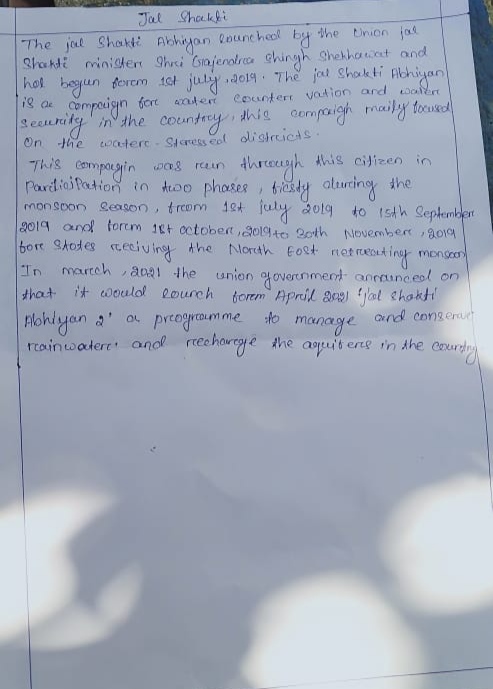 Jal Shakti
The jal Shakti Abhiyan lounched by the Union jal
Shakti minister Shri Gajendra Shingh Shekhawat and
hol begun forem 1st july, 2019. The jal Shakti Abhiyan
is a compaign fore water counter vation and water
security in the country, this compaigh maily foused
On the water - Stressed districts.
This compaygin was run through this citizen in
Participation in two phases, ficsty during the
monsoon season, from 1st july 2019 to 15th September
2019 and forem 1st october, 2019 to 30th November, 2019
fore States receiving the North East netreating monsoon
In march, 2021 the union government announced on
that it would lounch forem April 2021 'jal shakti
Abhiyan 2' a programme to manage and conserve
rainwater. and recharge the aquifers in the country